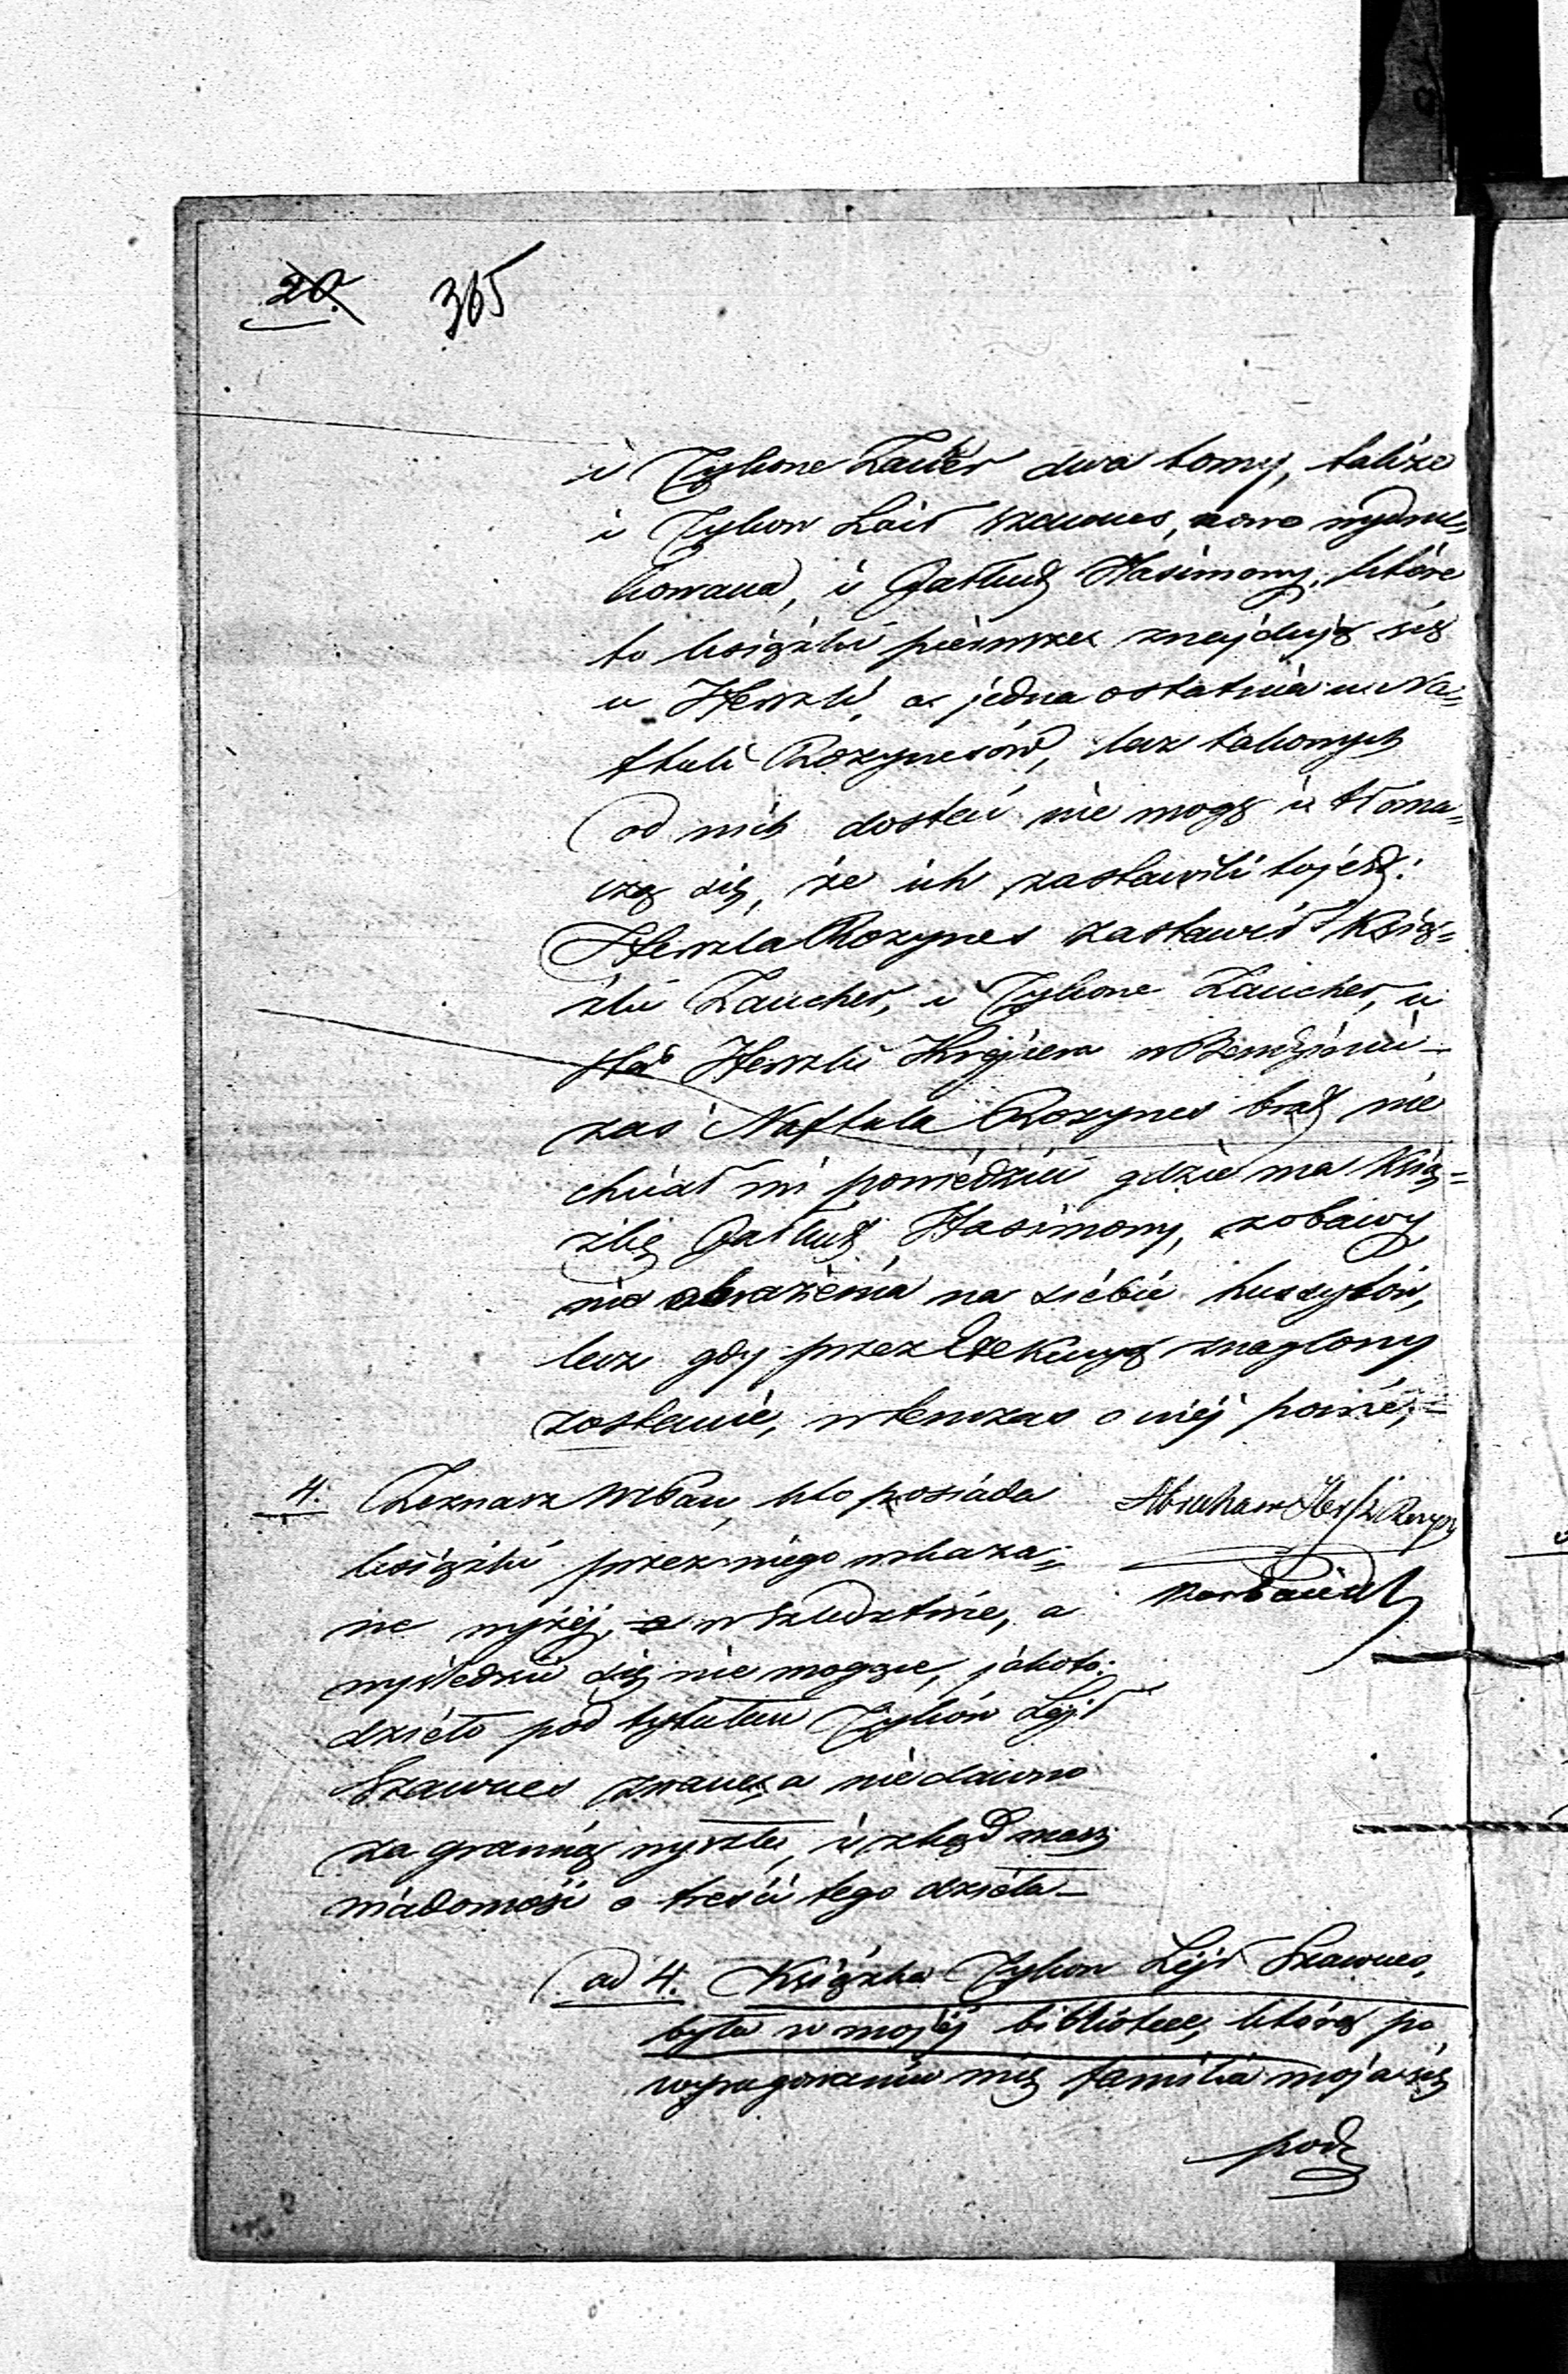 20. 365
i Tykone Zaucher dwa tomy, takze
i Tykon Lail Szawues, nowo wydru-
kowana, i Gatkuẹ Hasimony, które
to książki pierwsze znajdują się
u Herszli, a jedna ostatnia u Na-
ftuli Rozynesów, lecz takowych
od nich dostać nie mogę i tłoma-
czą się, że ich zastawili to jest:
Herszla Rozynes zastawił Ksią-
żki Zaucher, i Tykone Zaucher, u
Herszli Krojcera w Bendzinie
zaś Naftula Rozynes brat nie
chciał mi powiedzieć gdzie ma Ksią-
żkę Hasimony, z obawy
nie obrażenia na siebie hussytów,
lecz gdy przez Exekucyą znaglony
zostanie, wtenczas o niéj powie,
4. Zeznasz WPan, kto posiada
książki przez niego wskaza-
ne wyżéj, w Szledztwie, a
wyśledzić się nie mogące, jakoto:
dzieło pod tytułem Tykón Lejl
Szawues zwane, a niedawno
za granicą wyszłe, i zkąd masz
wiadomość o treści tego dzieła
Abraham Hersz Rozyn
ad 4. Książka Tykon Lejl Szawues,
była w mojéj bibliotece, którą po
wyrugowaniu mię familia moja się
pod